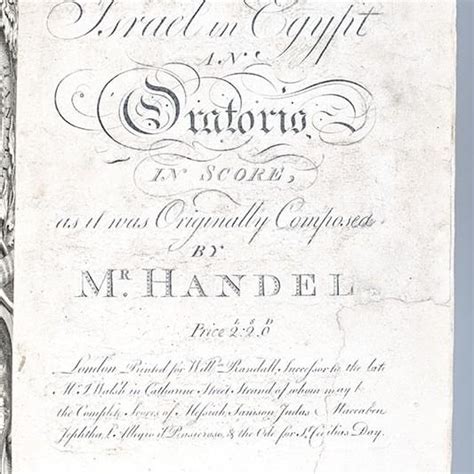 Israel in Egypt
AN
Oratorio,
IN SCORE,
as it was Originally Composed
BY
MR. HANDEL
Price £2: S2: D0
London Printed for Willm Randall, Successor to the late
Mr. J. Walsh in Catharine Street Strand of whom may be
the Complete Scores of Messiah, Samson, Judas Maccabeus
Jephtha, L'Allegro il Penseroso, & the Ode for St. Cecilias Day.